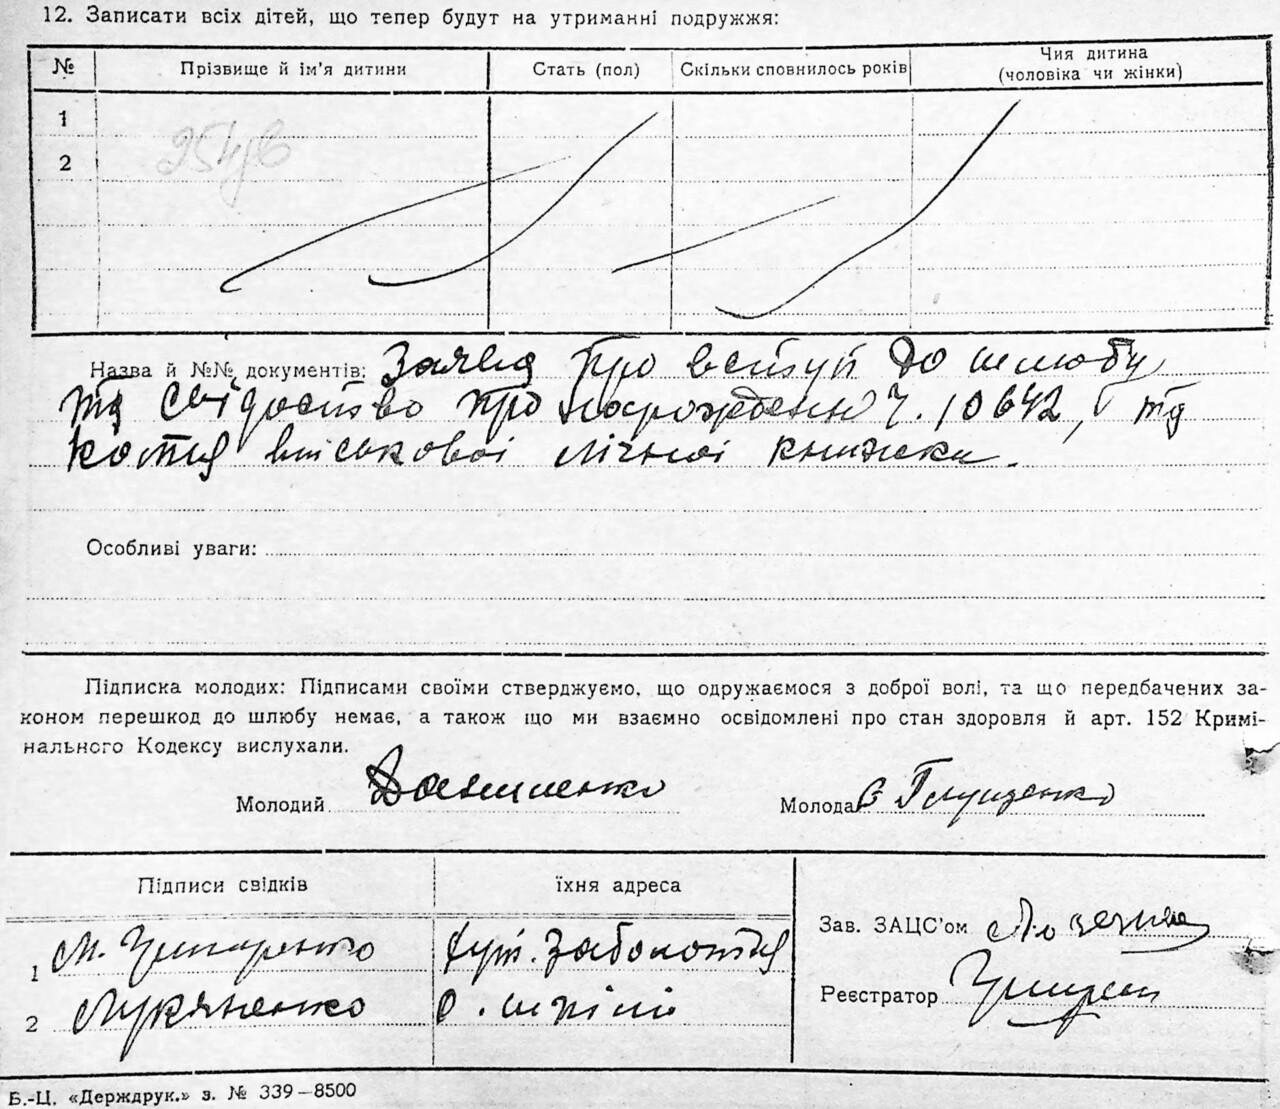 12. Записати всіх дітей, що тепер будут на утриманні подружжя:
№ Прізвище й ім'я дитини Стать (пол) Скільки сповнилось років Чия дитина (чоловіка чи жінки)
1
2
Назва й №№ документів: Заява про вступ до шлюбу
та свідоцтво про народження Ч. 10642, та
копия військової лічної книжки.
Особливі уваги:
Підписка молодих: Підписами своїми стверджуємо, що одружаємося з доброї волі, та що передбачених за-
коном перешкод до шлюбу немає, а також що ми взаємно освідомлені про стан здоровля й арт. 152 Кримі-
нального Кодексу вислухали.
Молодий Молода Глущенко
Підписи свідків їхня адреса
Зав. ЗАЦС'ом
1 М. хут.
Реєстратор
2 Лукяненко с.
Б.-Ц. «Держдрук.» з. № 339—8500